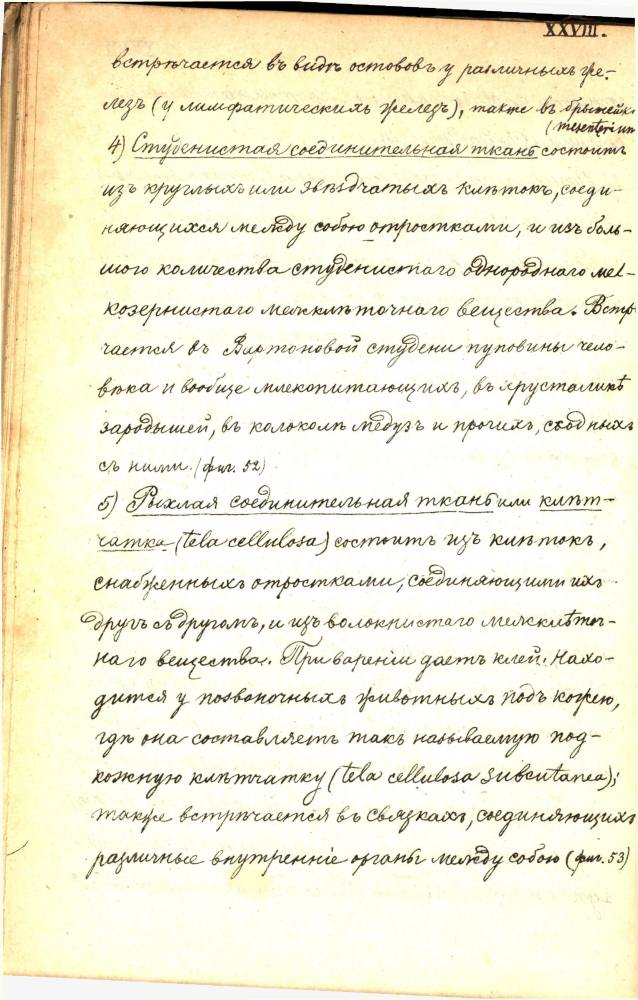 XXVIII.
встрѣчается въ видѣ остововъ у различныхъ же-
лезъ (у лимфатическихъ железъ), также въ брыжейкѣ
(mesenterium
4) Студенистая соединительная ткань состоитъ
изъ круглыхъ или звѣздчатыхъ клѣтокъ, соеди-
няющихся между собою отростками, и изъ боль-
шого количества студенистаго однороднаго мел-
козернистаго межклѣточнаго вещества. Встрѣ-
чается въ Вартоновой студени пуповины чело-
вѣка и вообще млекопитающихъ, въ хрусталикѣ
зародышей, въ колоколѣ медузъ и прочихъ, сходныхъ
съ ними. (фиг. 52)
5) Рыхлая соединительная ткань или клѣт-
чатка (tela cellulosa) состоитъ изъ клѣтокъ,
снабженныхъ отростками, соединяющими ихъ
другъ съ другомъ, и изъ волокнистаго межклѣточ-
наго вещества. При вареніи даетъ клей. Нахо-
дится у позвоночныхъ животныхъ подъ кожею,
гдѣ она составляетъ такъ называемую под-
кожную клѣтчатку (tela cellulosa subcutanea);
также встрѣчается въ связкахъ, соединяющихъ
различные внутренніе органы между собою (фиг. 53)